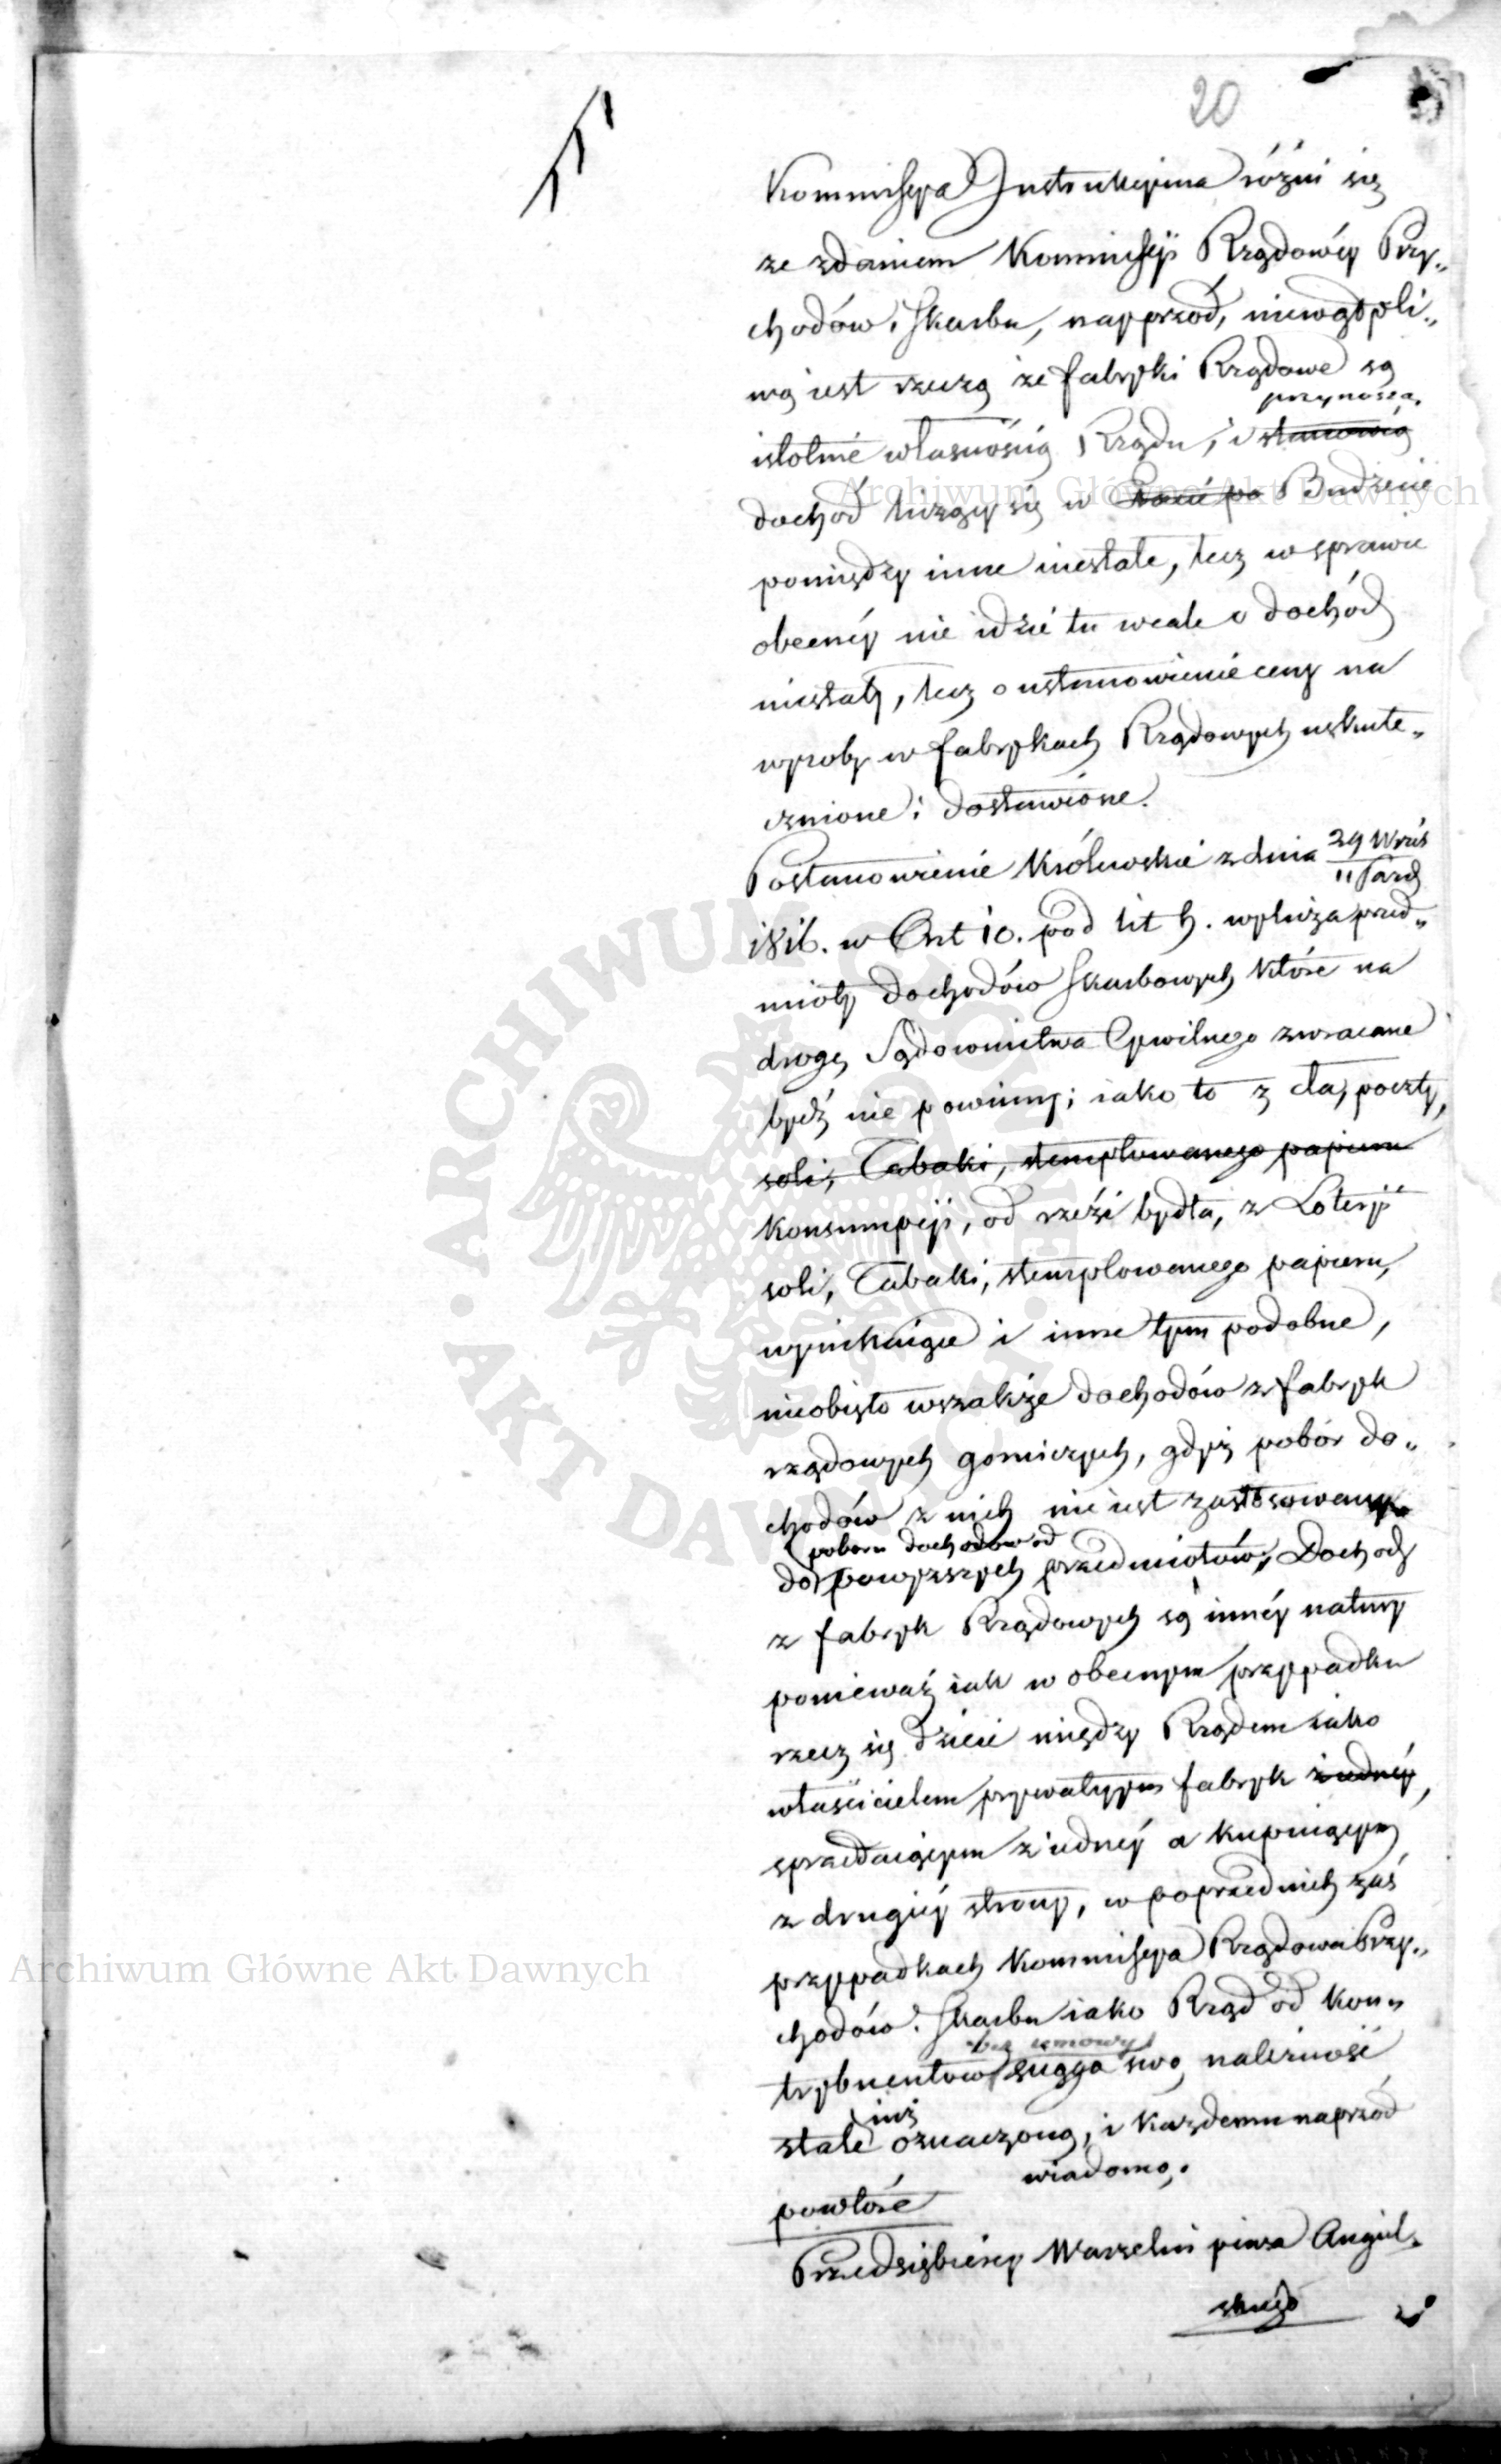 20
Kommissya Instrukcyina różni się
ze zdaniem Kommissyi Rządowéy Przy„
chodów i Skarbu, nayprzod, niewątpli„
wą iest rzeczą że fabryki Rządowe są
przynoszą
istotnie własnością Rządu, i stanowią
dochód liczący się w Budżecie
pomiędzy inne niestałe, lecz w sprawie
obecnéy nie idzie tu wcale o dochód
niestały, lecz o ustanowienie ceny na
wyroby w fabrykach Rządowych uskute„
cznione i dostawione.
Postanowienie Królewskie z dnia 29 Wrześ
11 Paźd
1816. w Art 10. pod lit h. wylicza przed„
mioty dochodów Skarbowych które na
drogę Sądownictwa Cywilnego zwracane
bydź nie powinny; iako to z cła, poczty,
soli, Tabaki, stemplowanego papieru
Konsumpcyi, od rzezi bydła, z Loteryi
soli, Tabaki, stemplowanego papieru,
wynikaiące i inne tym podobne,
nieobięto wszakże dochodów z fabryk
rządowych gorniczych, gdyż pobór do„
chodów z nich nie iest zastosowany
poboru dochodów od
do powyższych przedmiotów, Dochody
z fabryk Rządowych są innéy natury
ponieważ iak w obecnym przypadku
rzecz się dzieie między Rządem iako
właścicielem prywatnym fabryk z iednéy,
sprzedaiącym z iednéy a kupuiącym
z drugiéy strony, w poprzednich zaś
przypadkach Kommissya Rządowa Przy„
chodów i Skarbu iako Rząd od kon„
bez umowy
trybuentów ściąga swą należność
iuż
stale oznaczoną, i każdemu naprzód
wiadomą.
powtóre
Przedsiębiercy Warzelni piwa Angiel„
skiego
Archiwum Główne Akt Dawnych
Archiwum Główne Akt Dawnych
ARCHIWUM GŁÓWNE • AKT DAWNYCH •